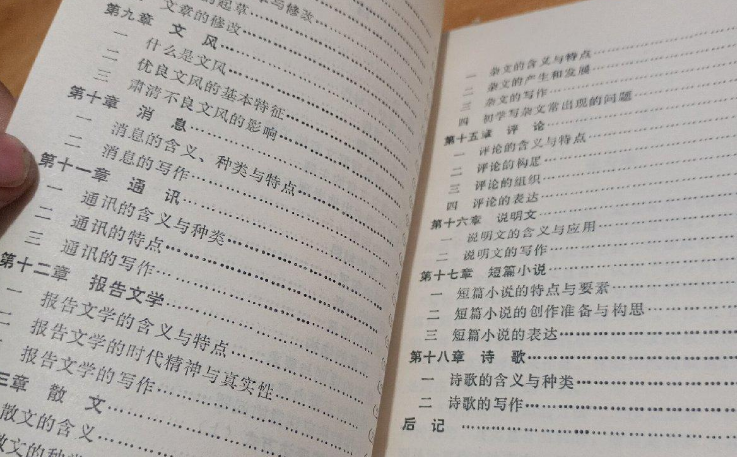 文章的修改
第九章 文 风
一 什么是文风
二 优良文风的基本特征
三 肃清不良文风的影响
第十章 消 息
一 消息的含义、种类与特点
二 消息的写作
第十一章 通 讯
一 通讯的含义与种类
二 通讯的特点
三 通讯的写作
第十二章 报告文学
一 报告文学的含义与特点
二 报告文学的时代精神与真实性
报告文学的写作
三章 散 文
散文的含义
一 杂文的含义与特点
二 杂文的产生和发展
三 杂文的写作
四 初学写杂文常出现的问题
第十五章 评 论
一 评论的含义与特点
二 评论的构思
三 评论的组织
四 评论的表达
第十六章 说明文
一 说明文的含义与应用
二 说明文的写作
第十七章 短篇小说
一 短篇小说的特点与要素
二 短篇小说的创作准备与构思
三 短篇小说的表达
第十八章 诗 歌
一 诗歌的含义与种类
二 诗歌的写作
后 记